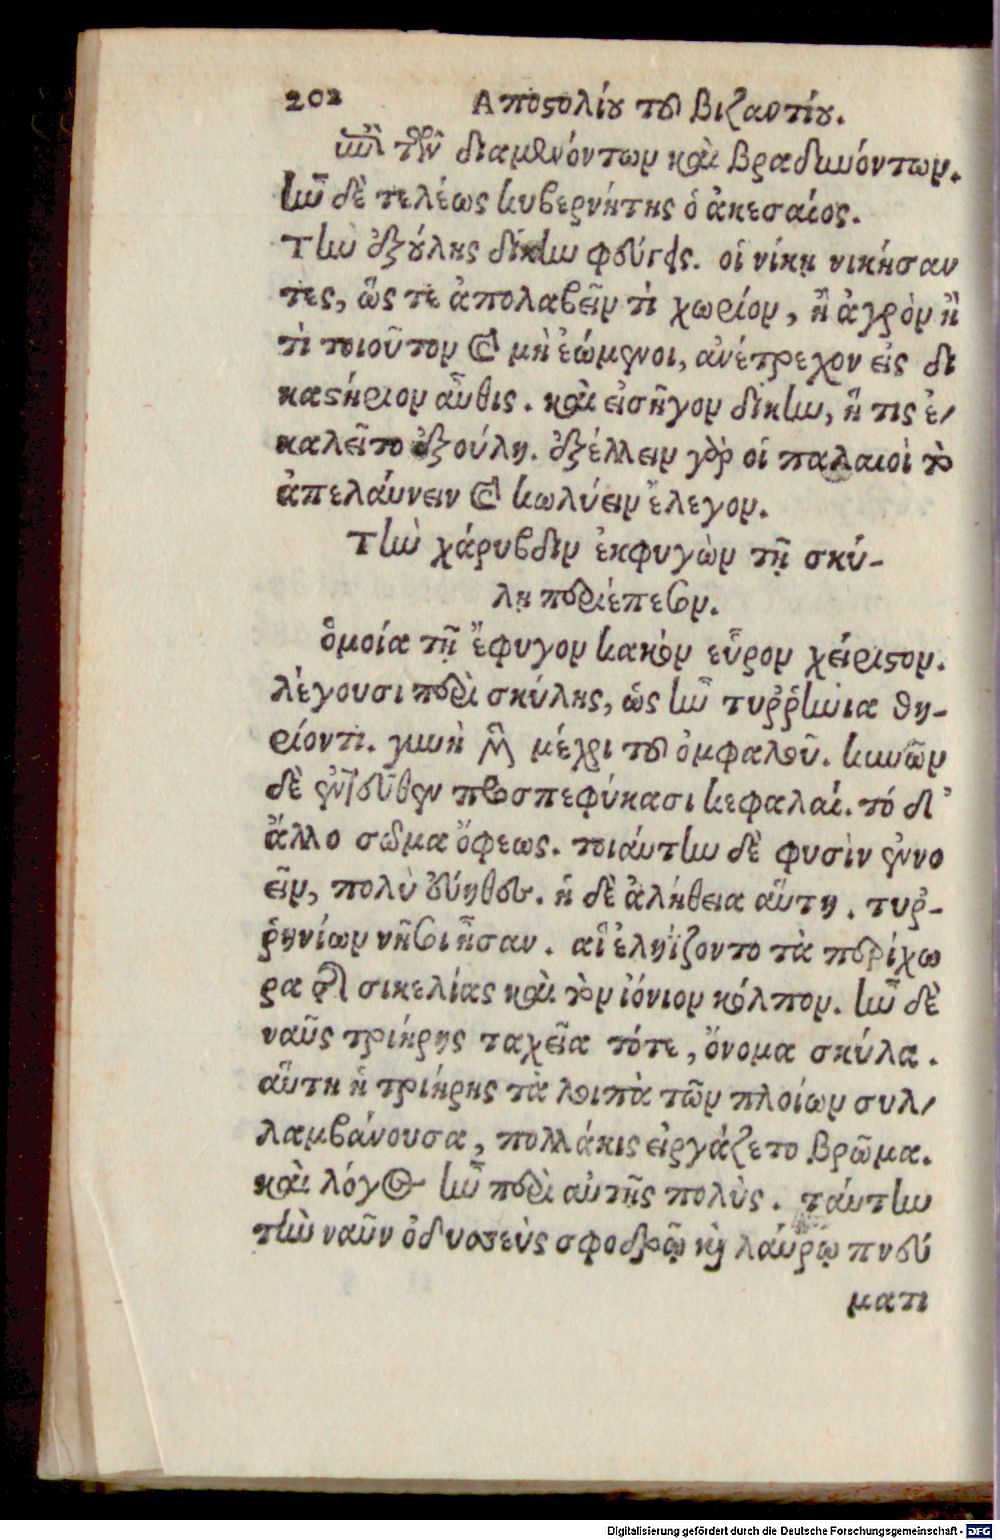 202 Αποστολίου τοῦ βιζαντίου.
ἐπὶ τῶν διαμενόντων καὶ βραδυνόντων.
ἦν δὲ τελέως κυβερνήτης ὁ ἀκεσαίος.
Τὴν ἐξούλης δίκην φεύγεις. οἱ νίκῃ νικήσαν
τες, ὥς τε ἀπολαβεῖν τὶ χωρίον, ἢ ἀγρὸν ἢ
τὶ τοιοῦτον καὶ μὴ ἐώμενοι, ἀνέτρεχον εἰς δι
καστήριον αὖθις. καὶ εἰσῆγον δίκην, ἥ τις ἐ-
καλεῖτο ἐξούλη. ἐξέλλειν γὰρ οἱ παλαιοὶ τὸ
ἀπελαύνειν καὶ κωλύειν ἔλεγον.
Τὴν χάρυβδιν ἐκφυγὼν τῇ σκύ-
λῃ περιέπεσον.
ὁμοία τῇ ἔφυγον κακὸν εὗρον χείριστον.
λέγουσι περὶ σκύλης, ὡς ἦν τυῤῥηνια θη-
ρίοντι. γυνὴ μὲν μέχρι τοῦ ὀμφαλοῦ. κυνῶν
δὲ ἐντεῦθεν προσπεφύκασι κεφαλαί. τό δ'
ἄλλο σῶμα ὄφεως. τοιάυτην δὲ φυσὶν ἐννο
εῖν, πολὺ εὔηθες. ἡ δὲ ἀλήθεια αὕτη. τυῤ-
ῥηνίων νῆσοι ἦσαν. αἳ ἐληΐζοντο τὰ περίχω
ρα τῆς σικελίας καὶ τὸν ἰόνιον κόλπον. ἦν δὲ
ναῦς τριήρης ταχεῖα τότε, ὄνομα σκύλα.
αὕτη ἡ τριήρης τὰ λοιπὰ τῶν πλοίων συλ-
λαμβάνουσα, πολλάκις εἰργάζετο βρῶμα.
καὶ λόγος ἦν περὶ αὐτῆς πολὺς. τάυτην
τὴν ναῦν ὀδυσσεὺς σφοδρῷ καὶ λάυρῳ πνεύ
ματι
Digitalisierung gefördert durch die Deutsche Forschungsgemeinschaft - DFG